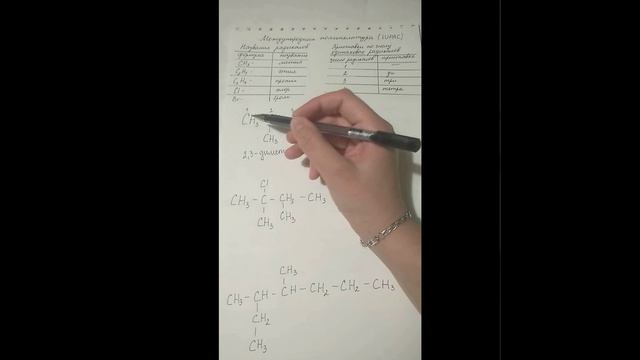 Международная номенклатура (IUPAC)
Названия радикалов
Приставки по числу
одинаковых радикалов
формула название
число радикалов приставка
CH₃- метил
1 —
C₂H₅- этил
2 ди
C₃H₇- пропил
3 три
Cl- хлор
тетра
Br- бром
1 2
CH₃
CH₃
2,3-димет
Cl
CH₃ - C - CH - CH₃
CH₃ CH₃
CH₃
CH₃ - CH - CH - CH₂ - CH₂ - CH₃
CH₂
CH₃